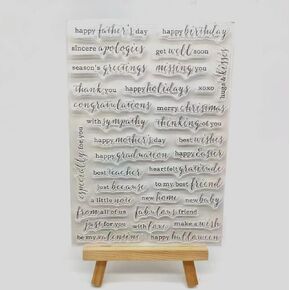 happy father's day happy birthday
sincere apologies get well soon
season's greetings missing you
hugs & kisses
thank you happy holidays xoxo
congratulations merry christmas
with sympathy thinking of you
especially for you
happy mother's day best wishes
happy graduation happy easter
best teacher heartfelt gratitude
just because to my best friend
a little note new home new baby
from all of us fabulous friend
just for you with love make a wish
be my valentine happy halloween